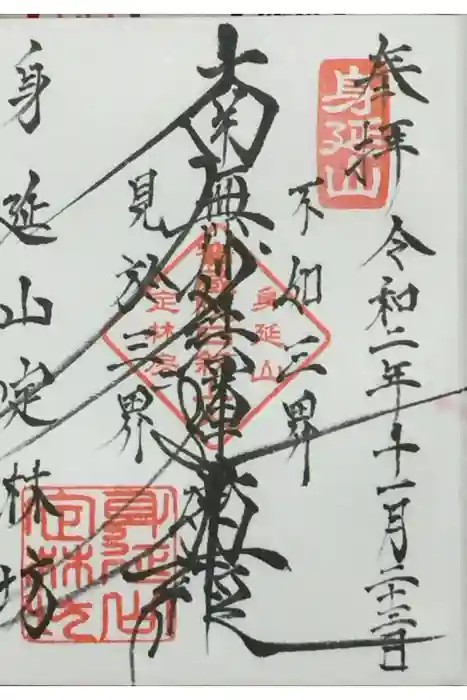 奉拝 令和二年十一月二十三日
身延山
不如三界
南無妙法蓮華経
見於三界
身延山
定林坊
身延山定林坊
身延山
定林坊